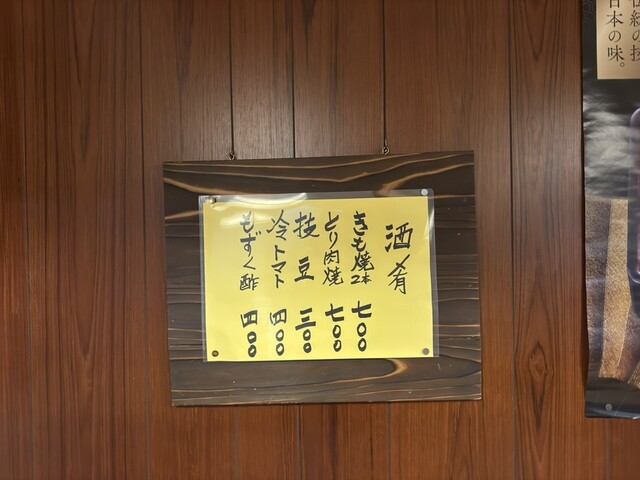 酒肴
きも焼2本 七〇〇
とり肉焼 七〇〇
技豆 三〇〇
冷トマト 四〇〇
もずく酢 四〇〇
伝統の技
日本の味。